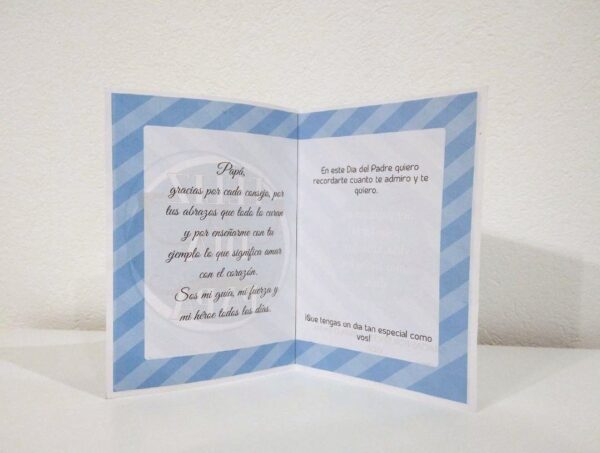 Papá,
gracias por cada consejo, por
tus abrazos que todo lo curan
y por enseñarme con tu
ejemplo lo que significa amar
con el corazón.
Sos mi guía, mi fuerza y
mi héroe todos los días.
En este Dia del Padre quiero
recordarte cuanto te admiro y te
quiero.
¡Que tengas un dia tan especial como
vos!